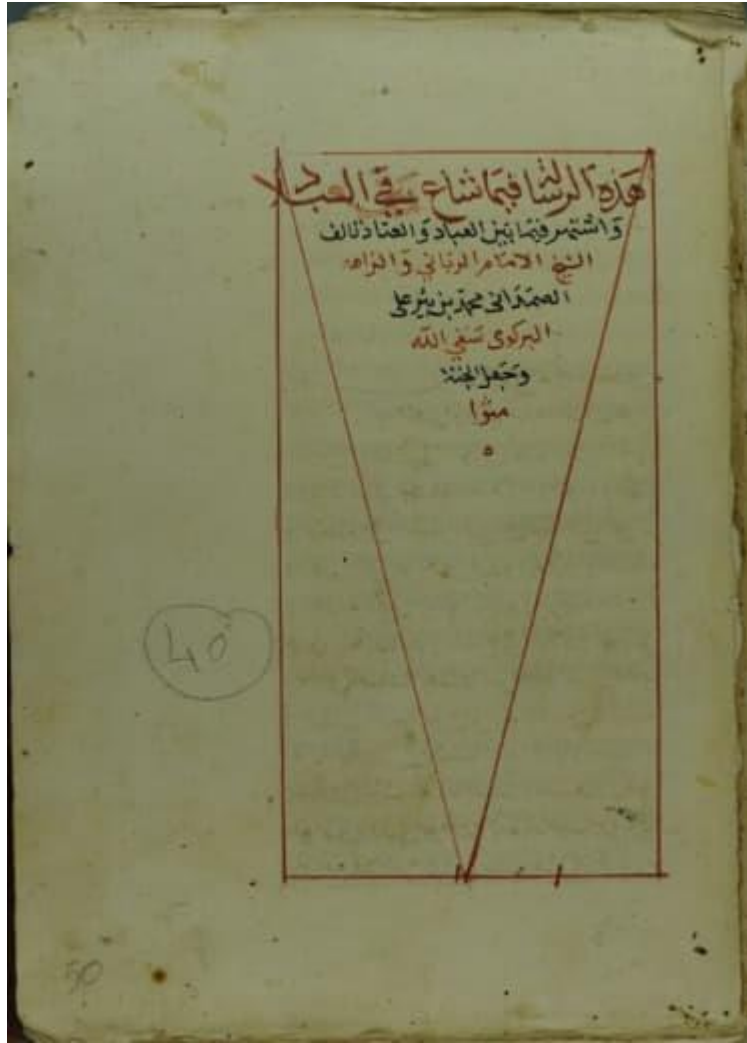 هذه الرسالة فيما شاع في العباد
واشتهر فيما بين العباد والعتاد تالف
الشيخ الامام الرباني والزاهد
الصمداني محمد بن بير على
البركوى سقي الله
وجعل الجنة
مثوا
ه
40
50